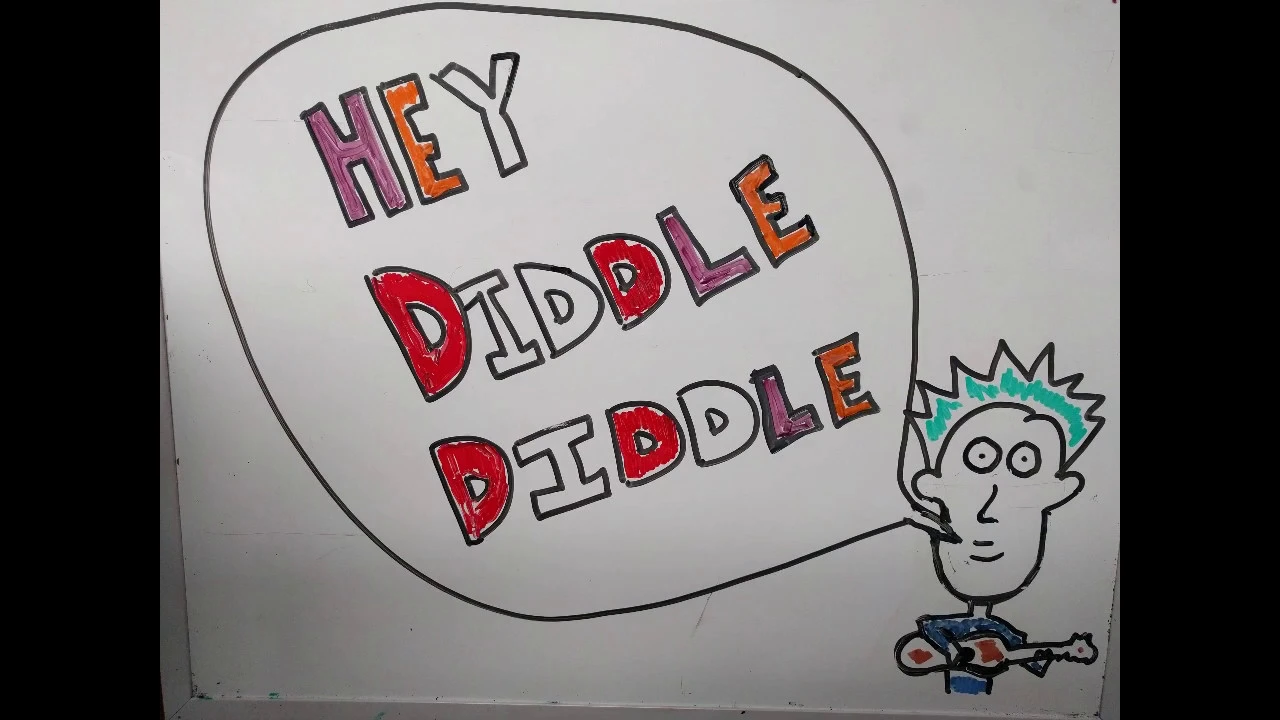 HEY
DIDDLE
DIDDLE